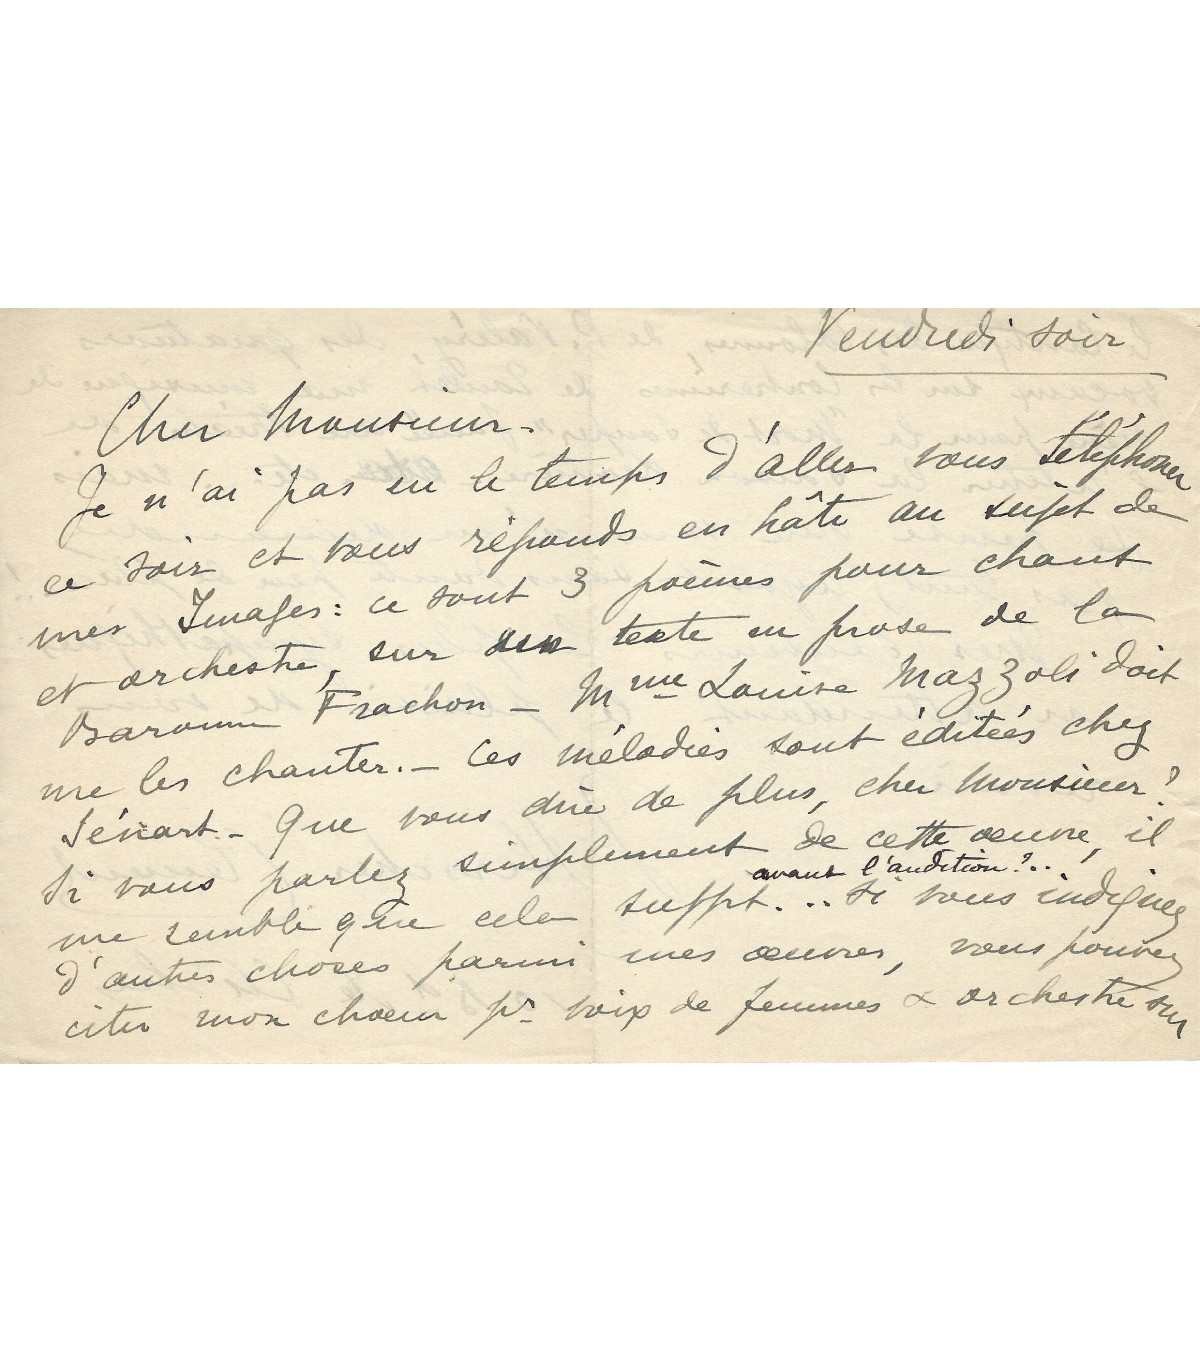 Vendredi soir
Cher Monsieur -
Je n'ai pas eu le temps d'aller vous téléphoner
ce soir et vous réponds en hâte au sujet de
mes Images : ce sont 3 poèmes pour chant
et orchestre, sur texte en prose de la
Baronne Frachon - Mme Louise Mazzoli doit
me les chanter. - Ces mélodies sont éditées chez
Sénart - Que vous dire de plus, cher Monsieur?
Si vous parlez simplement de cette œuvre, il
avant l'audition?..
me semble que cela suffit... Si vous indiquez
d'autres choses parmi mes œuvres, vous pouvez
citer mon chœur pr voix de femmes & orchestre sur